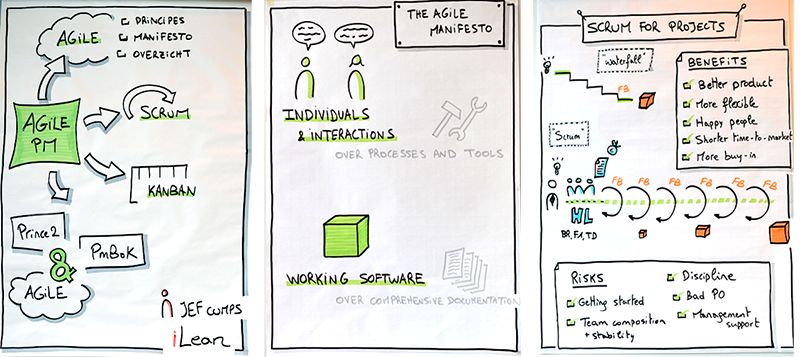 AGILE
PRINCIPES
MANIFESTO
OVERZICHT
AGILE
PM
SCRUM
KANBAN
Prince2
PmBoK
&
AGILE
JEF CUMPS
iLean
THE AGILE
MANIFESTO
INDIVIDUALS
& INTERACTIONS
OVER PROCESSES AND TOOLS
WORKING SOFTWARE
OVER COMPREHENSIVE DOCUMENTATION
SCRUM FOR PROJECTS
"Waterfall"
FB
BENEFITS
Better product
More flexible
Happy people
Shorter time-to-market
More buy-in
"Scrum"
FB FB FB FB FB FB
HL
BR, FA, TD
RISKS
Getting started
Team composition
+ stability
Discipline
Bad PO
Management
support